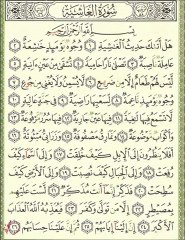 سُورَةُ الْغَاشِيَةِ
بِسْمِ اللَّهِ الرَّحْمَٰنِ الرَّحِيمِ
هَلْ أَتَاكَ حَدِيثُ الْغَاشِيَةِ ۝ وُجُوهٌ يَوْمَئِذٍ خَاشِعَةٌ ۝
عَامِلَةٌ نَاصِبَةٌ ۝ تَصْلَىٰ نَارًا حَامِيَةً ۝ تُسْقَىٰ مِنْ عَيْنٍ آنِيَةٍ ۝
لَيْسَ لَهُمْ طَعَامٌ إِلَّا مِنْ ضَرِيعٍ ۝ لَا يُسْمِنُ وَلَا يُغْنِي مِنْ جُوعٍ ۝
وُجُوهٌ يَوْمَئِذٍ نَاعِمَةٌ ۝ لِسَعْيِهَا رَاضِيَةٌ ۝ فِي جَنَّةٍ عَالِيَةٍ ۝
لَا تَسْمَعُ فِيهَا لَاغِيَةً ۝ فِيهَا عَيْنٌ جَارِيَةٌ ۝ فِيهَا سُرُرٌ مَرْفُوعَةٌ ۝
وَأَكْوَابٌ مَوْضُوعَةٌ ۝ وَنَمَارِقُ مَصْفُوفَةٌ ۝ وَزَرَابِيُّ مَبْثُوثَةٌ ۝
أَفَلَا يَنْظُرُونَ إِلَى الْإِبِلِ كَيْفَ خُلِقَتْ ۝ وَإِلَى السَّمَاءِ كَيْفَ
رُفِعَتْ ۝ وَإِلَى الْجِبَالِ كَيْفَ نُصِبَتْ ۝ وَإِلَى الْأَرْضِ كَيْفَ
سُطِحَتْ ۝ فَذَكِّرْ إِنَّمَا أَنْتَ مُذَكِّرٌ ۝ لَسْتَ عَلَيْهِمْ
بِمُصَيْطِرٍ ۝ إِلَّا مَنْ تَوَلَّىٰ وَكَفَرَ ۝ فَيُعَذِّبُهُ اللَّهُ الْعَذَابَ
الْأَكْبَرَ ۝ إِنَّ إِلَيْنَا إِيَابَهُمْ ۝ ثُمَّ إِنَّ عَلَيْنَا حِسَابَهُمْ ۝